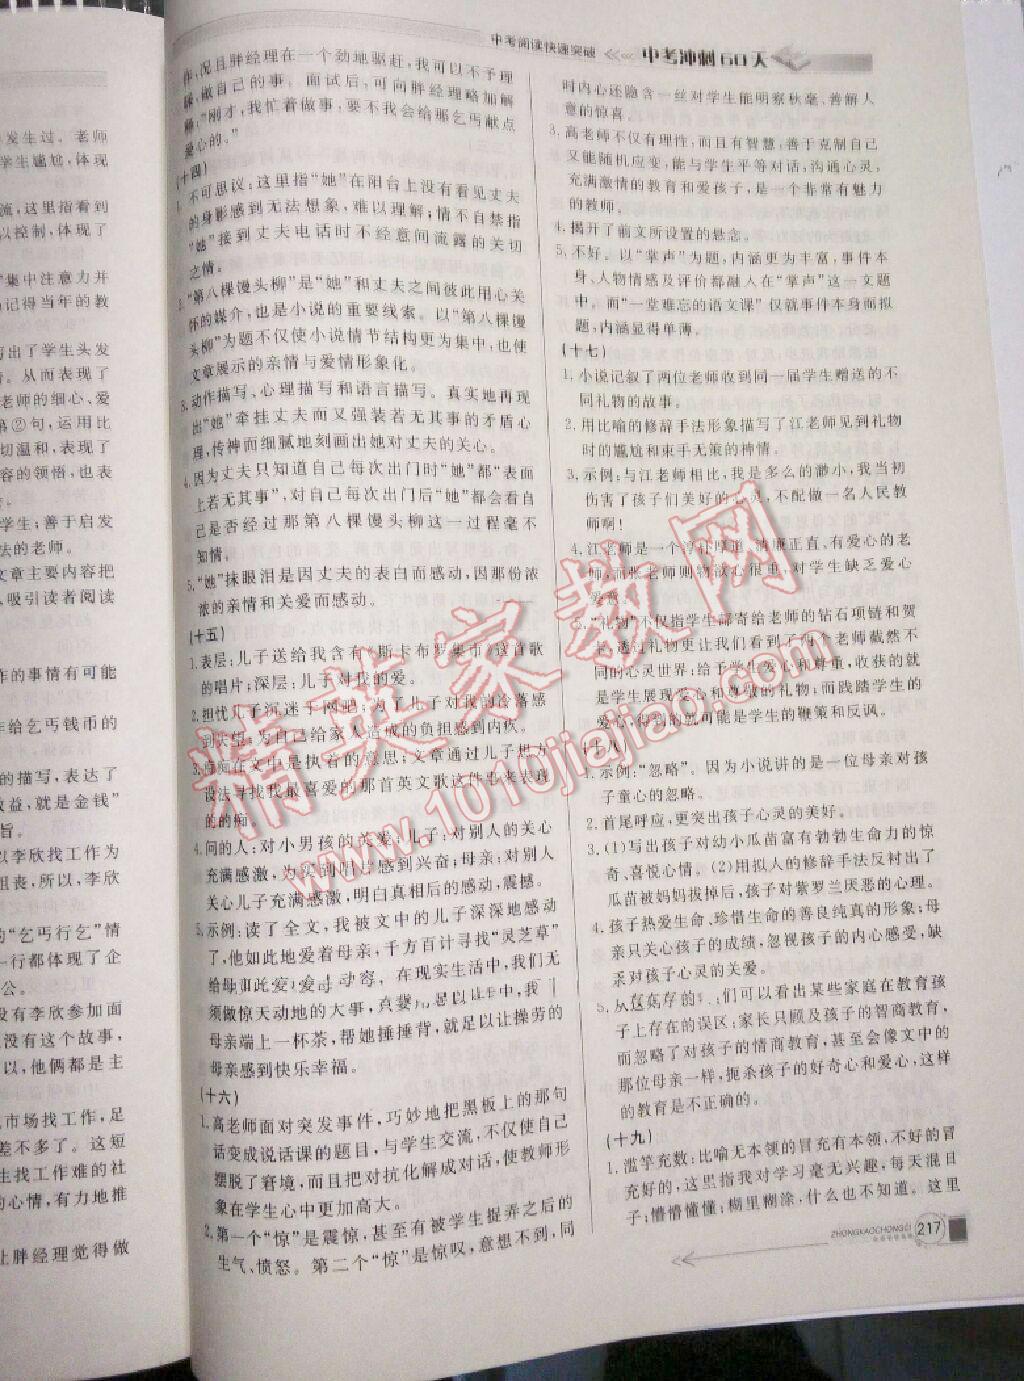 中考阅读快速突破 中考冲刺60天
发生过。老师
学生尴尬,体现
流,这里指看到
以控制,体现了
“集中注意力并
记得当年的教
写出了学生头发
。从而表现了
老师的细心、爱
第②句,运用比
切温和,表现了
容的领悟,也表
学生;善于启发
法的老师。
文章主要内容把
吸引读者阅读
作的事情有可能
作给乞丐钱币的
的描写,表达了
效益,就是金钱”
旨。
以李欣找工作为
沮丧,所以,李欣
的“乞丐行乞”情
一行都体现了企
公。
没有李欣参加面
没有这个故事,
以,他俩都是主
市场找工作,足
差不多了。这短
生找工作难的社
心情,有力地推
上胖经理觉得做
作,况且胖经理在一个劲地驱赶,我可以不予理
睬,做自己的事。面试后,可向胖经理略加解
释:“刚才,我忙着做事,要不我会给那乞丐献点
爱心的。”
(十四)
不可思议:这里指“她”在阳台上没有看见丈夫
的身影感到无法想象,难以理解;情不自禁指
“她”接到丈夫电话时不经意间流露的关切
之情。
“第八棵馒头柳”是“她”和丈夫之间彼此用心关
怀的媒介,也是小说的重要线索。以“第八棵馒
头柳”为题不仅使小说情节结构更为集中,也使
文章展示的亲情与爱情形象化。
3.动作描写、心理描写和语言描写。真实地再现
出“她”牵挂丈夫而又强装若无其事的矛盾心
程,传神而细腻地刻画出她对丈夫的关心。
4.因为丈夫只知道自己每次出门时“她”都“表面
上若无其事”,对自己每次出门后“她”都会看自
己是否经过那第八棵馒头柳这一过程毫不
知情。
5.“她”抹眼泪是因丈夫的表白而感动,因那份浓
浓的亲情和关爱而感动。
(十五)
1.表层:儿子送给我含有《斯卡布罗集市》这首歌
的唱片;深层:儿子对我的爱。
2.担忧儿子沉迷于网吧;为了儿子对我的冷落感
到失望;为自己给家人造成的负担感到内疚。
3.痴在文中是执着的意思;文章通过儿子想方
设法寻找我最喜爱的那首英文歌这件事来表现
的的痴。
4.问的人:对小男孩的关爱;儿子:对别人的关心
充满感激,为买到唱片感到兴奋;母亲:对别人
关心儿子充满感激,明白真相后的感动,震撼。
5.示例:读了全文,我被文中的儿子深深地感动
了,他如此地爱着母亲,千方百计寻找“灵芝草”
给母亲,在现实生活中,我们无
须做惊天动地的大事,
母亲端上一杯茶,帮她捶捶背,就足以让操劳的
母亲感到快乐幸福。
(十六)
1.高老师面对突发事件,巧妙地把黑板上的那句
话变成说话课的题目,与学生交流,不仅使自己
摆脱了窘境,而且把对抗化解成对话,使教师形
象在学生心中更加高大。
2.第一个“惊”是震惊,甚至有被学生捉弄之后的
生气、愤怒。第二个“惊”是惊叹,意想不到,同
时内心还隐含一丝对学生能明察秋毫、善解人
意的惊喜。
3.高老师不仅有理性,而且有智慧,善于克制自己
又能随机应变,能与学生平等对话,沟通心灵,
充满激情的教育和爱孩子,是一个非常有魅力
的教师。
4.揭开了前文所设置的悬念。
5.不好。以“掌声”为题,内涵更为丰富,事件本
身、人物情感及评价都融入在“掌声”这一文题
中。而“一堂难忘的语文课”仅就事件本身而拟
题,内涵显得单薄。
(十七)
1.小说记叙了两位老师收到同一届学生赠送的不
同礼物的故事。
2.用比喻的修辞手法形象描写了江老师见到礼物
时的尴尬和束手无策的神情。
3.示例:与江老师相比,我是多么的渺小,我当初
伤害了孩子们美好的心灵,不配做一名人民教
师啊!
4.江老师是一个淳朴厚道、清廉正直、有爱心的老
师;而张老师则物欲心很重,对学生缺乏爱心
爱意。
5.“礼物”不仅指学生邮寄给老师的钻石项链和贺
卡,透过礼物更让我们看到了两个老师截然不
同的心灵世界:给予学生爱心和尊重,收获的就
是学生展现爱心和尊敬的礼物;而践踏学生的
爱心,得到的就可能是学生的鞭策和反讽。
(十八)
1.示例:“忽略”。因为小说讲的是一位母亲对孩
子童心的忽略。
2.首尾呼应,更突出孩子心灵的美好。
3.(1)写出孩子对幼小瓜苗富有勃勃生命力的惊
奇、喜悦心情。(2)用拟人的修辞手法反衬出了
瓜苗被妈妈拔掉后,孩子对紫罗兰厌恶的心理。
4.孩子热爱生命、珍惜生命的善良纯真的形象;母
亲只关心孩子的成绩,忽视孩子的内心感受,缺
乏对孩子心灵的关爱。
5.从们可以看出某些家庭在教育孩
子上存在的误区:家长只顾及孩子的智商教育,
而忽略了对孩子的情商教育,甚至会像文中的
那位母亲一样,扼杀孩子的好奇心和爱心,这样
的教育是不正确的。
(十九)
1.滥竽充数:比喻无本领的冒充有本领,不好的冒
充好的,这里指我对学习毫无兴趣,每天混日
子;懵懵懂懂:糊里糊涂,什么也不知道。这里
ZHONGKAOCHONGCI 217
精英家教网
www.1010jiajiao.com